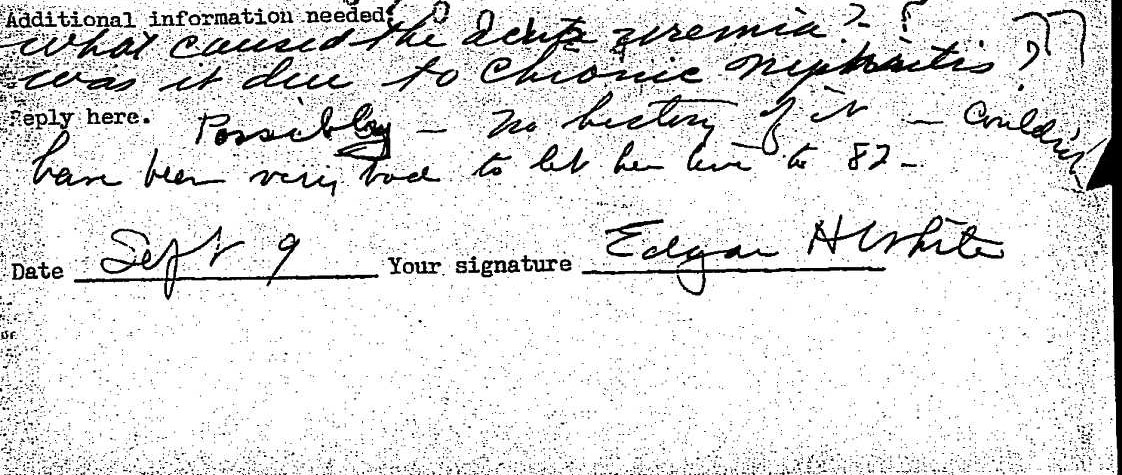 Additional information needed:
what caused the acute uremia? - ?
was it due to chronic nephritis ? ??
Reply here. Possibly - no history of it - couldn't
have been very bad to let her live to 82 -
Date Sept 9 Your signature Edgar H White